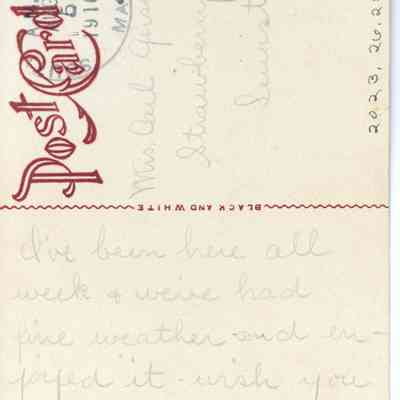 Post Card
191
MA
Mrs. Carl
Strawberry
2023.26.2
BLACK AND WHITE
I've been here all
week & we've had
fine weather and en-
joyed it - wish you